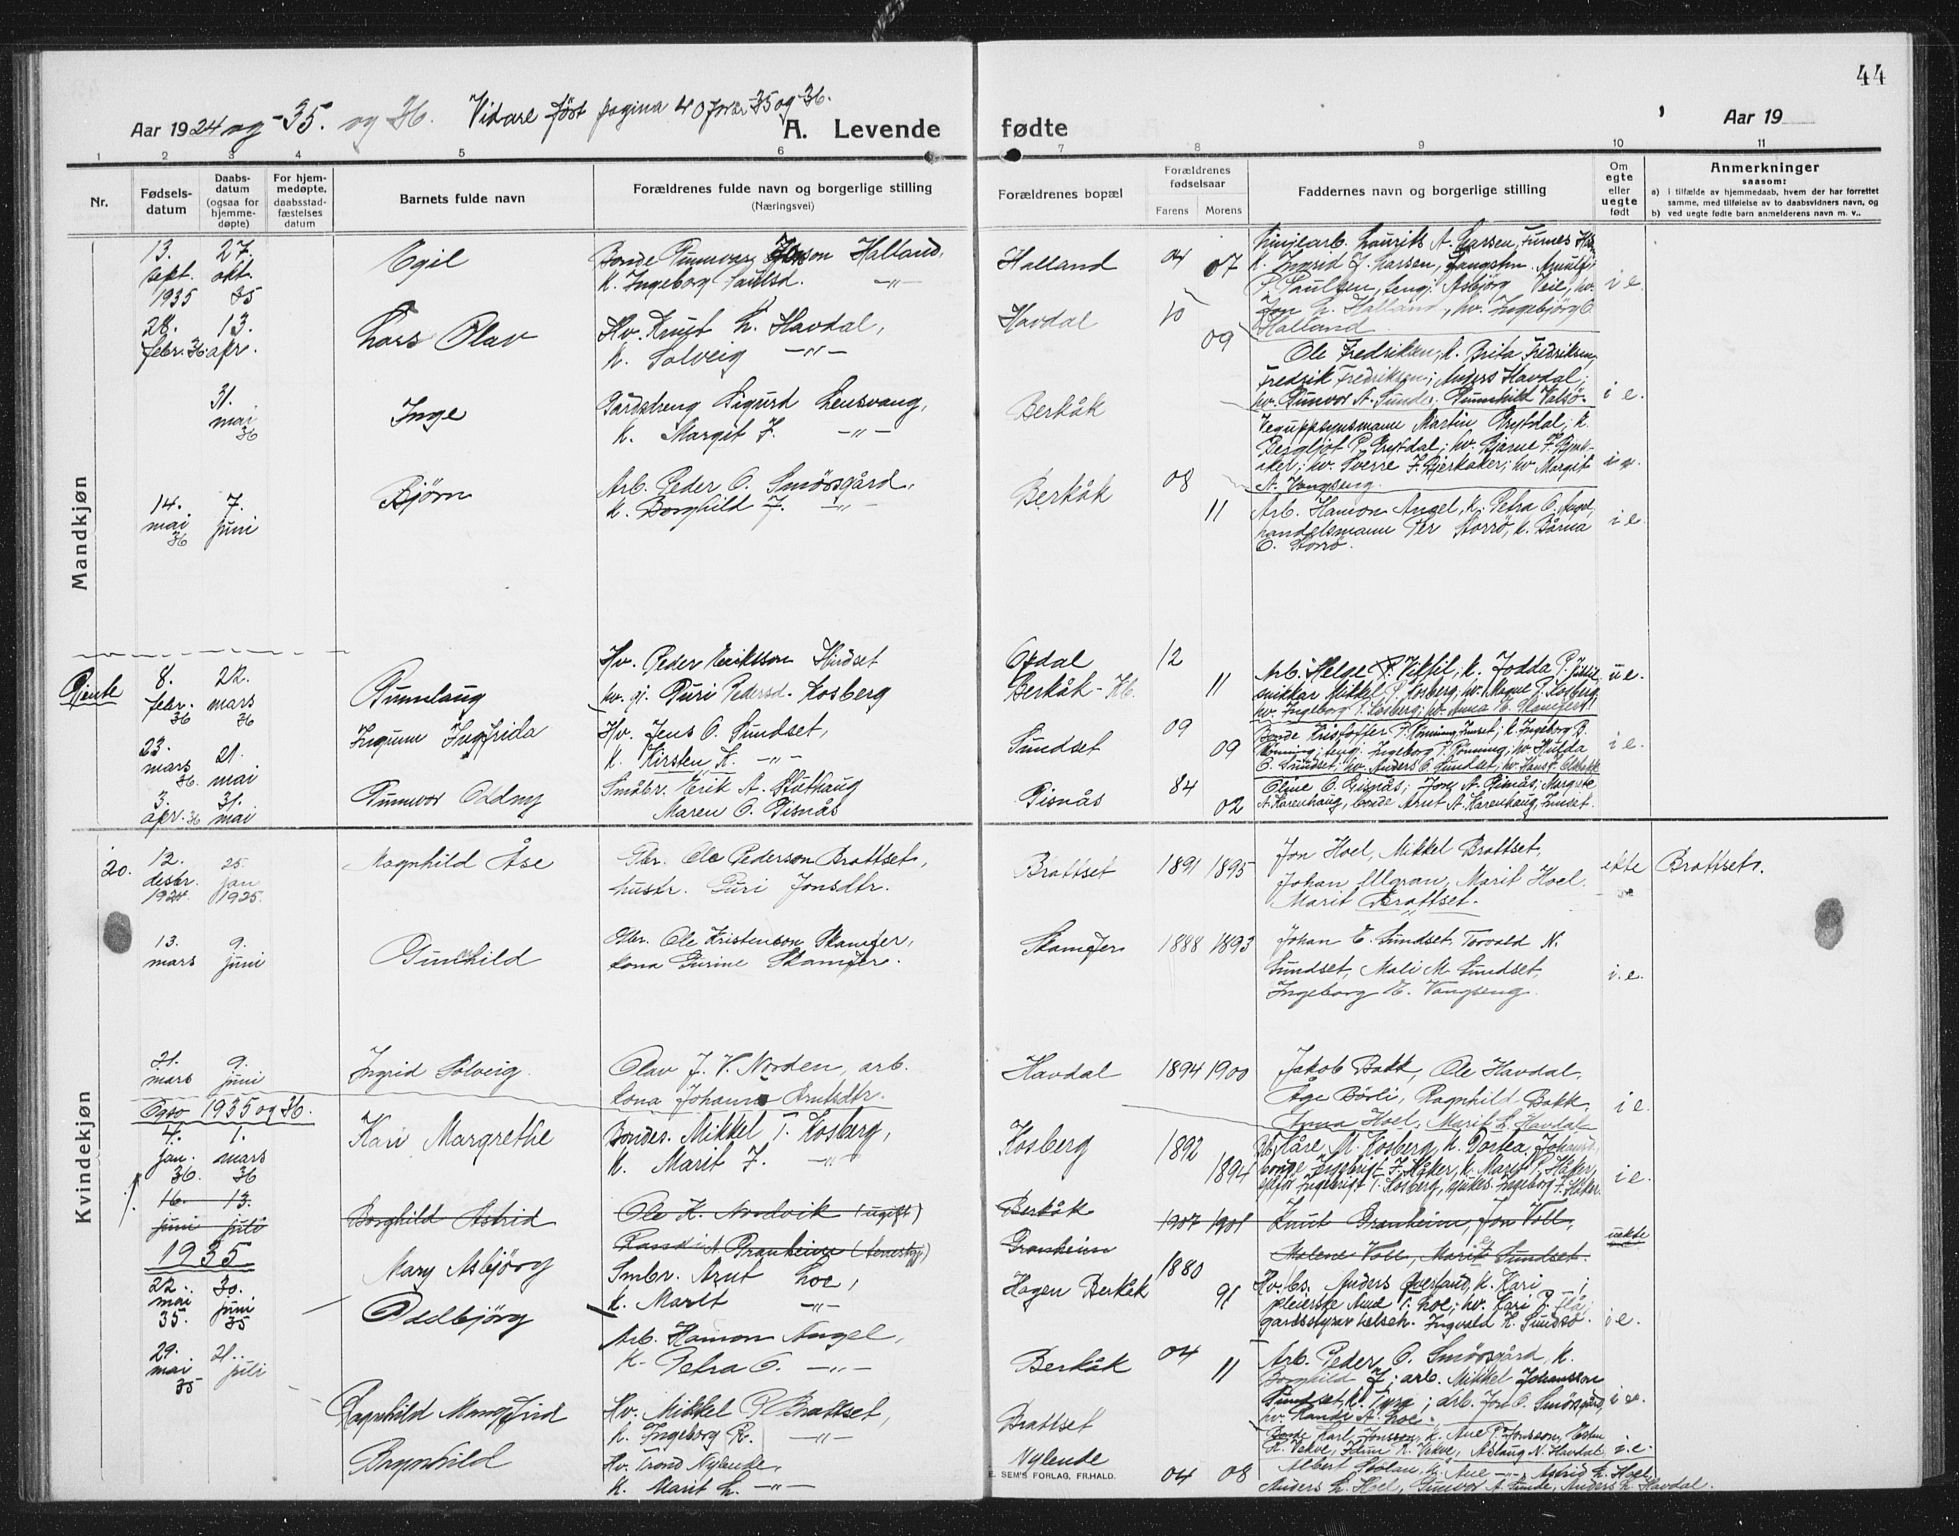 44
Aar 1924 og -35. og 36. Vidare ført pagina 40 for år 35 og 36.
A. Levende fødte
Aar 19
1 2 3 4 5 6 7 8 9 10 11
Nr.
Fødsels-
datum
Daabs-
datum
(ogsaa for
hjemme-
døpte)
For hjem-
medøpte,
daabsstad-
fæstelses
datum
Barnets fulde navn
Forældrenes fulde navn og borgerlige stilling
(Næringsvei)
Forældrenes bopæl
Forældrenes
fødselsaar
Farens Morens
Faddernes navn og borgerlige stilling
Om
egte
eller
uegte
født
Anmerkninger
saasom:
a) i tilfælde av hjemmedaab, hvem der har forrettet
samme, med tilføielse av to daabsvidners navn, og
b) ved uegte fødte barn anmelderens navn m. v..
Mandkjøn
13. 27.
sept. okt.
1935 35
Egil
Bonde Gunnvarg Jonson Halland,
K. Ingeborg Paulsd. -"-
Halland
04 07
Linjearb. Lauriks A. Larsen, Furnes
K. Ingrid J. Larsen, Langstn. Arnulf
P. Paulsen, ungj. Asbjørg Veil, hv.
Jon L. Halland, hv. Ingebjørg O.
Halland
i e.
28. 13.
febr. 36 apr.
Lars Olav
Hv. Knut L. Havdal,
K. Solveig -"-
Havdal
10 09
Ole Fredriksen, k. Brita Fredriksen,
Fredrik Fredriksen; Anders Havdal;
hv. Gunvor A. Sunde. Gunnhild Valsø.
i e.
31.
mai
36
Inge
Gardsdreng Sigurd Leusvang,
K. Margit F. -"-
Berkåk
Veguppsynsmann Martin Grytdal; k.
Bergljot P. Grytdal; hv. Bjarne F. Bjerk-
aker; hv. Sverre F. Bjerkaker; hv. Margit
A. Vangseng.
14. 7.
mai juni
36
Bjørn
Arb. Peder O. Smørsgård,
K. Borghild J. -"-
Berkåk
08 11
Arb. Hamon Angel, k. Petra O. Angel,
handelsmann Per Storrø, k. Bårna
O. Storrø.
i e.
Gjente
8. 22.
febr. mars
36 36
Gunnlaug
Hv. Peder Eriksson Hindset
hv. gj. Guri Pedersd. Kosberg
Opdal
Berkåk - Kb.
12 11
Arb. Helge P. Vikfil, k. Jodda P.
snikkar Mikkel P. Kosberg, hv. Magne P. Kosberg,
hv. Ingeborg T. Kosberg; hv. Anna H. Skamfersli
u e.
23. 21.
mars mai
36.
Ingunn Ingfrida
Hv. Jens O. Sundset,
K. Kirsten K. -"-
Sundset
09 09
Bonde Kristoffer P. Rønning, Innset; k. Ingeborg B.
Rønning; ungj. Ingeborg P. Rønning; hv. Hulda
O. Sundset; hv. Anders O. Sundset; hv. Hans F.
i e.
3. 31.
apr. 36 mai
Gunnvor Oddny
Småbr. Erik A. Skuthaug
Maren O. Gisnås
Gisnås
84 02
Oline O. Gisnås; Jon A. Gisnås, Margrete
A. Karenhaug, bonde Arnt A. Karenhaug, Innset.
Kvindekjøn
20.
12. 25.
desbr. jan
1924 1925.
Magnhild Åse
Gbr. Ole Pederson Brattset,
hustr. Guri Jonsdtr.
Brattset
1891 1895
Jon Hoel, Mikkel Brattset,
Johan Ulgran, Marit Hoel
Marit Brattset.
ekte
Brattset.
13. 9.
mars juni
Gunhild
Gbr. Ole Kristenson Skamfer,
kona Gurine Skamfer.
Skamfer
1888 1893
Johan E. Sundset, Torvald N.
Sundset, Mali M. Sundset,
Ingeborg E. Vangseng.
i. e.
21. 9.
mars juni
Ingrid Solveig.
Olav J. V. Norden, arb.
kona Johanna Arntsdtr.
Havdal
1894 1900
Jakob Bakk, Ole Havdal,
Åge Børli, Ragnhild Bakk,
Anna Hoel, Marit L. Havdal
i e.
Også 1935 og 36.
4. 1.
jan. mars
36. 36
Kari Margrethe
Bondes. Mikkel T. Kosberg,
K. Marit J. -"-
Kosberg
1892 1894
Gb. Kåre M. Kosberg, k. Dortea Johansd.
bonde Ingebrigt J. Håker, k. Marit P. Håker,
Ingebrigt T. Kosberg, Ingeborg J. Håker.
i e.
16. 13.
juni juli
Borghild Astrid
Ole K. Nordvik (ugift)
Randi A. Granheim
Berkåk
Granheim
1907 1901
Knut Granheim, Jon Voll,
Malene Voll, Marit Sundset.
uekte
1935
22. 30.
mai juni
35. 35
Mary Asbjørg
Smbr. Arnt Loe,
K. Marit -"-
Hagen Berkåk
1880 91
Hv. bs. Anders Øverland, k. Kari -"-;
pleierske Aud T. Loe; hv. Kari P. Flå;
gardsstyrar helseh. Ingvald K. Sundsø.
i e.
29. 21.
mai juli
35
Oddbjørg
Arb. Hamon Angel,
K. Petra O. -"-
Berkåk
04 11
Arb. Peder O. Smørsgård, k.
Borghild J; arb. Mikkel Johansson
Sundset, k. Tyra; arb. Jon O. Smørsgård,
hv. Randi A. Loe.
i e.
Ragnhild Magnfrid
Hv. Mikkel P. Brattset,
K. Ingeborg R. -"-
Brattset
Bonde Karl Jonsson, k. Ane P. Jonsson, Esten
K. Vekve, Idun K. Vekve, Aslaug N. Havdal
i. e.
Brynhild
Hv. Trond Nylende,
K. Marit L. -"-
Nylende
04 08
Albert Stølan, k. Ane -"-, Astrid L. Hoel,
Anders L. Hoel, Gunvor A. Sunde, Anders L. Havdal.
E. SEM'S FORLAG, FR.HALD.